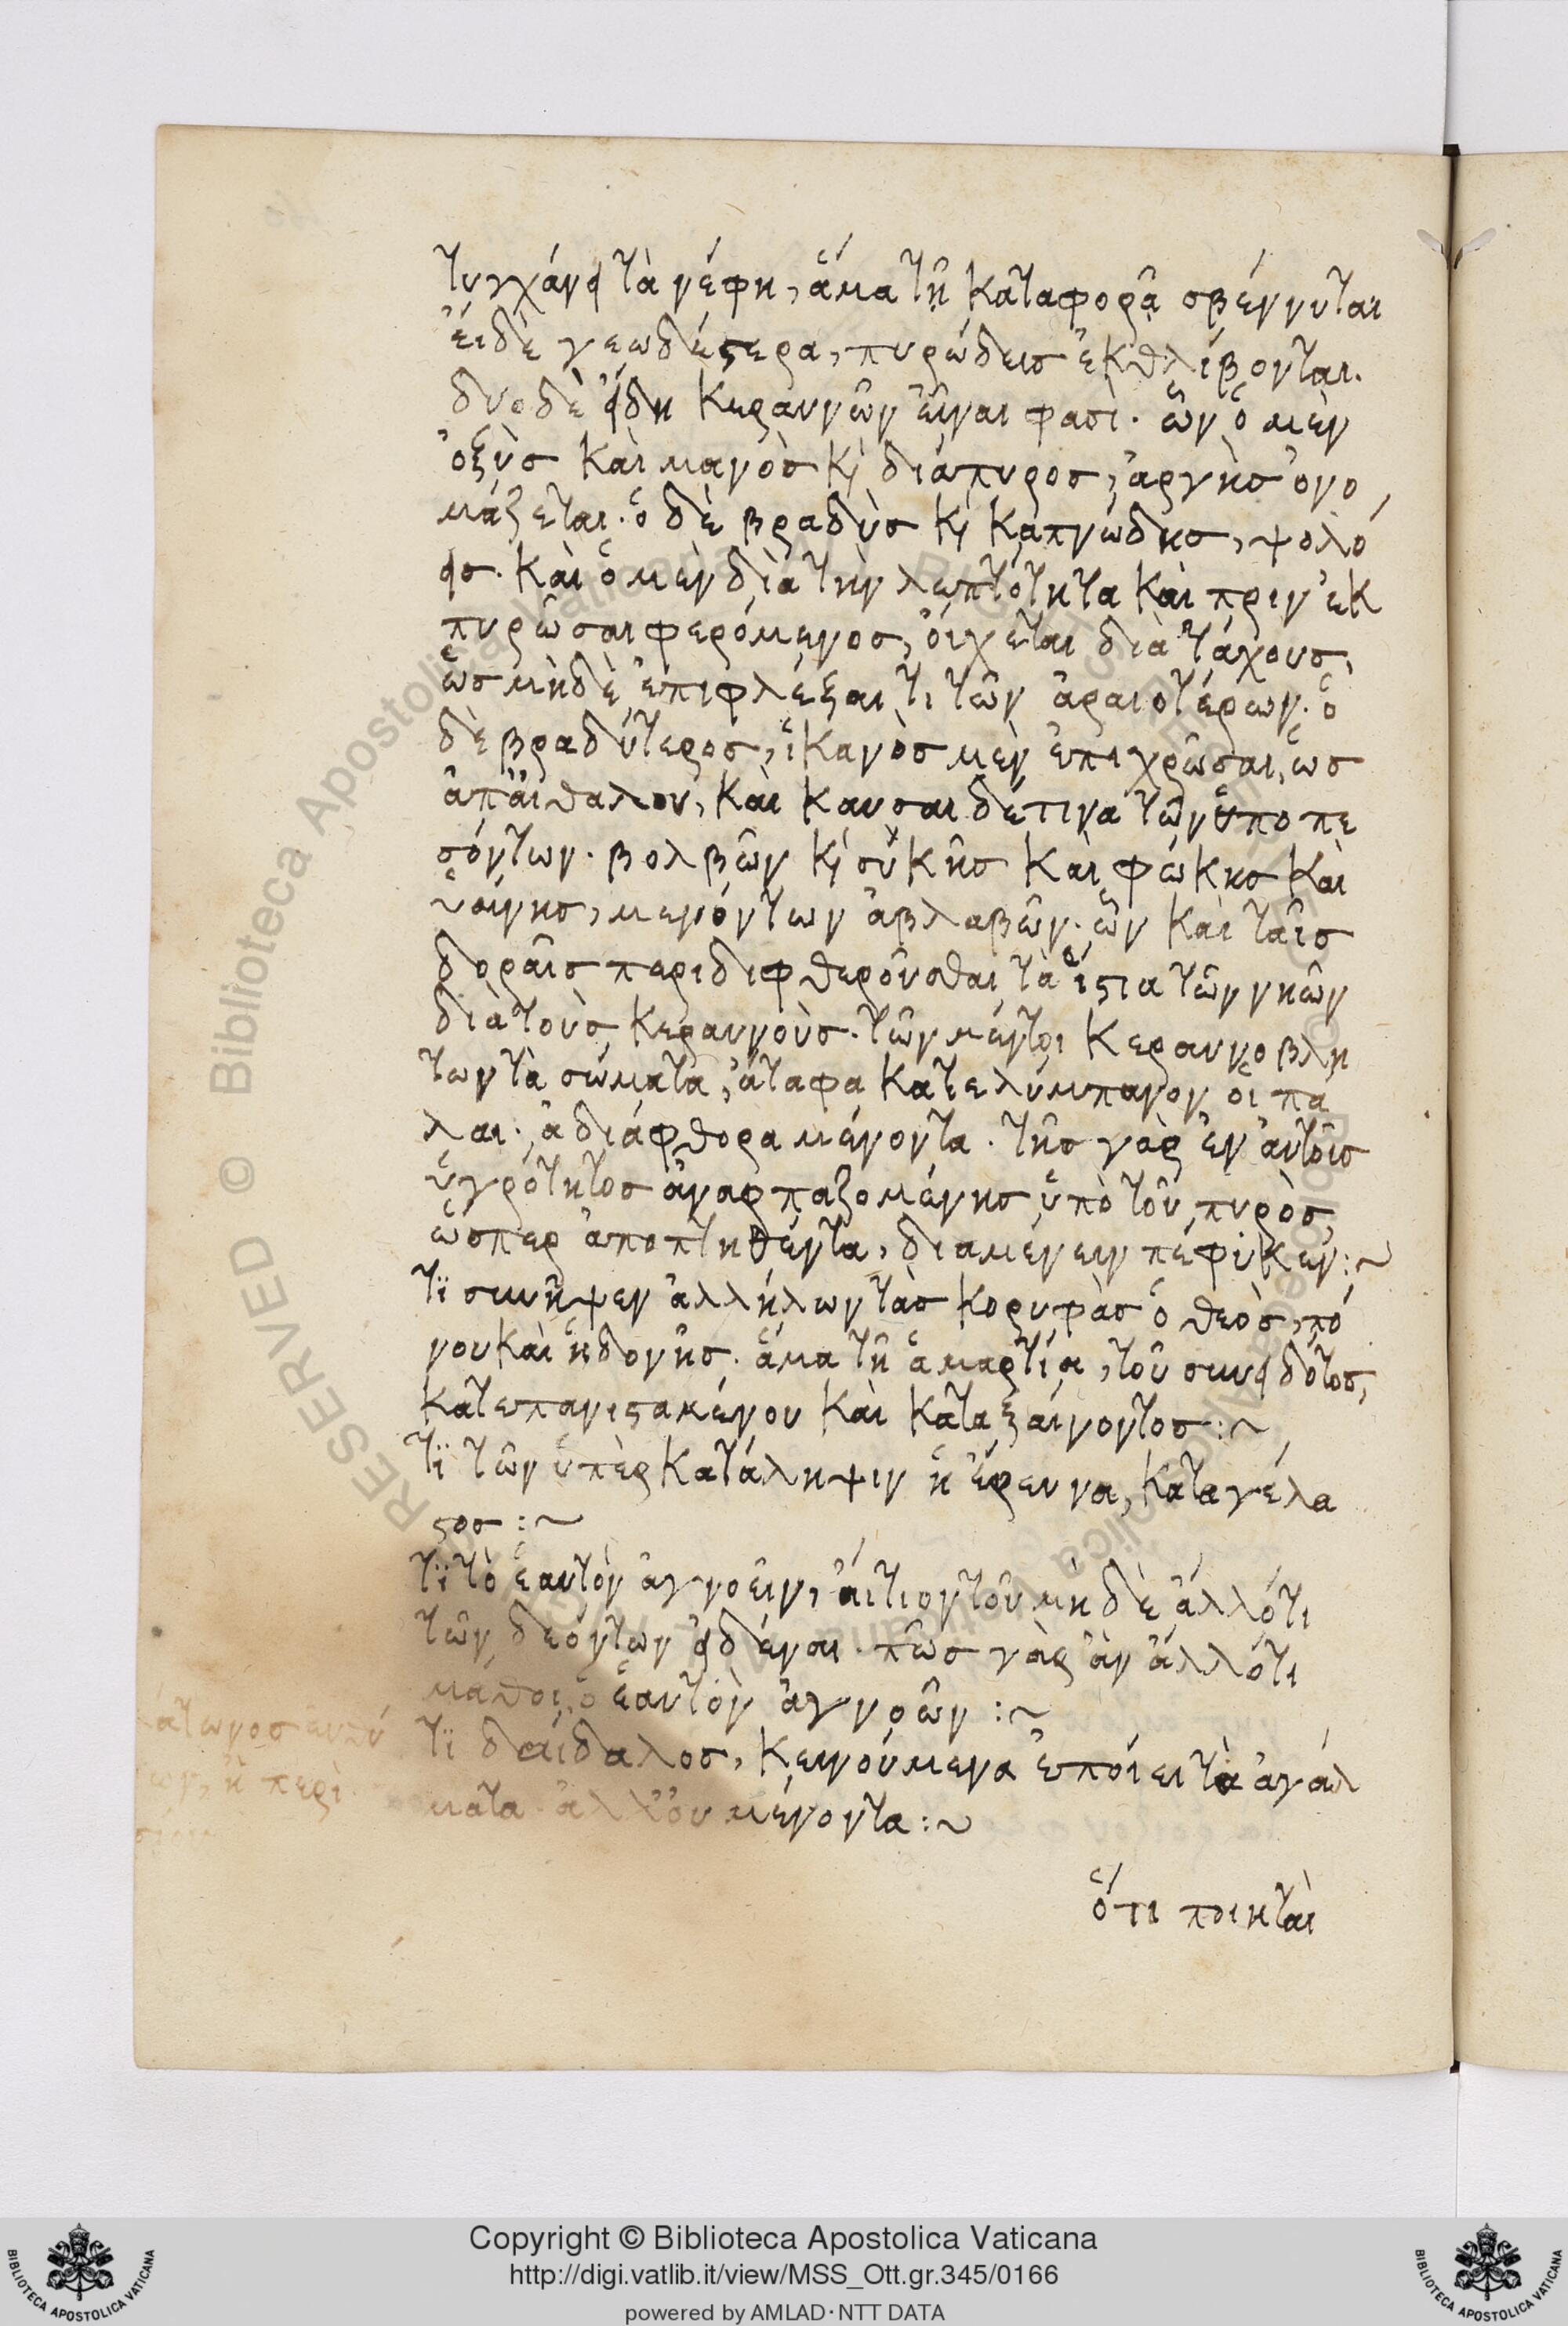 τυγχάνει τὰ νέφη, ἅμα τῇ καταφορᾷ σβέννυται
ἐι δὲ γεωδέστερα, πυρώδεισ ἐκθλίβονται.
δυο δὲ εἴδη κεραυνῶν εἶναι φασὶ. ὧν ὁ μὲν
ὀξὺσ καὶ μανὸσ κὶ διάπυροσ, ἀργὴσ ὀνο
μάζεται. ὁ δὲ βραδὺσ κὶ καπνώδησ, ψολό
εισ. καὶ ὁ μὲν διὰ τὴν λεπτότητα καὶ πριν ἐκ
πυρῶσαι φερόμενοσ, ὄιχεται διὰ τάχουσ,
ὡσ μηδὲ ἐπιφλέξαι τι τῶν ἀραιοτέρων. ὁ
δὲ βραδύτεροσ, ἱκανὸσ μὲν ἐπιχρῶσαι, ὡσ
ἀπ αἰθαλου, καὶ καυσαι δέ τινα τῶν ὑποπε
σόντων. βολβῶν κὶ συκῆσ καὶ φώκησ καὶ
ὑαίνησ, μενόντων ἀβλαβῶν. ὧν καὶ ταῖσ
δοραῖσ περιδιφθεροῦσθαι τὰ ἵστια τῶν νηῶν
διὰ τοὺσ κεραυνοὺσ. τῶν μέντοι κεραυνοβλή
των τὰ σώματα, ἄταφα κατελύμπανον οἱ πά
λαι. ἀδιάφθορα μένοντα. τῆσ γὰρ ἐν ἀυτοῖσ
ὑγρότητοσ ἀναρπαζομένησ ὑπὸ τοῦ πυρὸσ,
ὥσπερ ἀποπτηθέντα, διαμένειν πέφυκεν:~
Τί συνῆψεν ἀλλήλων τὰσ κορυφὰσ ὁ θεὸσ, πό
νου καὶ ἡδονῆσ. ἅμα τῇ ἁμαρτίᾳ, τοῦ συνειδότοσ,
κατεπανισταμένου καὶ καταξαίνοντοσ:~
Τί τῶν ὑπὲρ κατάληψιν ἡ ἔρευνα, καταγέλα
στοσ:~
Τί τὸ ἑαυτὸν ἀγνοεῖν, ἄιτιον τοῦ μηδὲ ἀλλότι
τῶν δεόντων εἰδέναι. πῶσ γὰρ ἂν ἀλλότι
μάθοι, ὁ ἑαυτὸν ἀγνοῶν:~
Τί δαίδαλοσ, κεινούμενα ἐποίει τὰ ἀγάλ
ματα. ἀλλ' ὀυ μένοντα:~
ὅτι ποιηταὶ
ἢ περὶ
RESERVED © Biblioteca Apostolica Vaticana
Copyright © Biblioteca Apostolica Vaticana
http://digi.vatlib.it/view/MSS_Ott.gr.345/0166
powered by AMLAD·NTT DATA
BIBLIOTECA APOSTOLICA VATICANA
BIBLIOTECA APOSTOLICA VATICANA